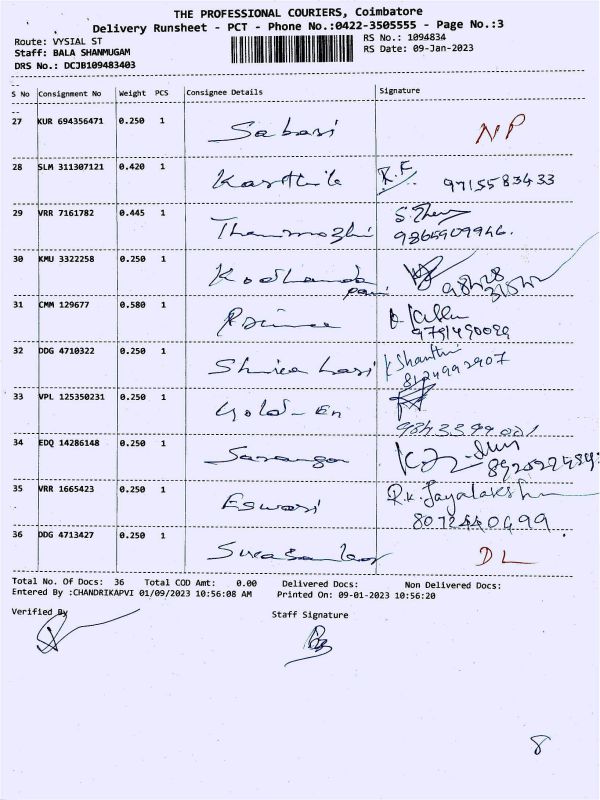 THE PROFESSIONAL COURIERS, Coimbatore
Delivery Runsheet - PCT - Phone No.:0422-3505555 - Page No.:3
Route: VYSIAL ST RS No.: 1094834
Staff: BALA SHANMUGAM RS Date: 09-Jan-2023
DRS No.: DCJB109483403
S No Consignment No Weight PCS Consignee Details Signature
27 KUR 694356471 0.250 1 Sabari NP
28 SLM 311307121 0.420 1 Karthik R.F 9715583433
29 VRR 7161782 0.445 1 Thenmozhi 9865909946.
30 KMU 3322258 0.250 1 Kodhanda pani
31 CMM 129677 0.580 1 Prince
32 DDG 4710322 0.250 1 K Shanthi 8124992907
33 VPL 125350231 0.250 1 Gold-En
34 EDQ 14286148 0.250 1
35 VRR 1665423 0.250 1 Eswari 8072440499
36 DDG 4713427 0.250 1 DL
Total No. Of Docs: 36 Total COD Amt: 0.00 Delivered Docs: Non Delivered Docs:
Entered By :CHANDRIKAPVI 01/09/2023 10:56:08 AM Printed On: 09-01-2023 10:56:20
Verified By Staff Signature
8